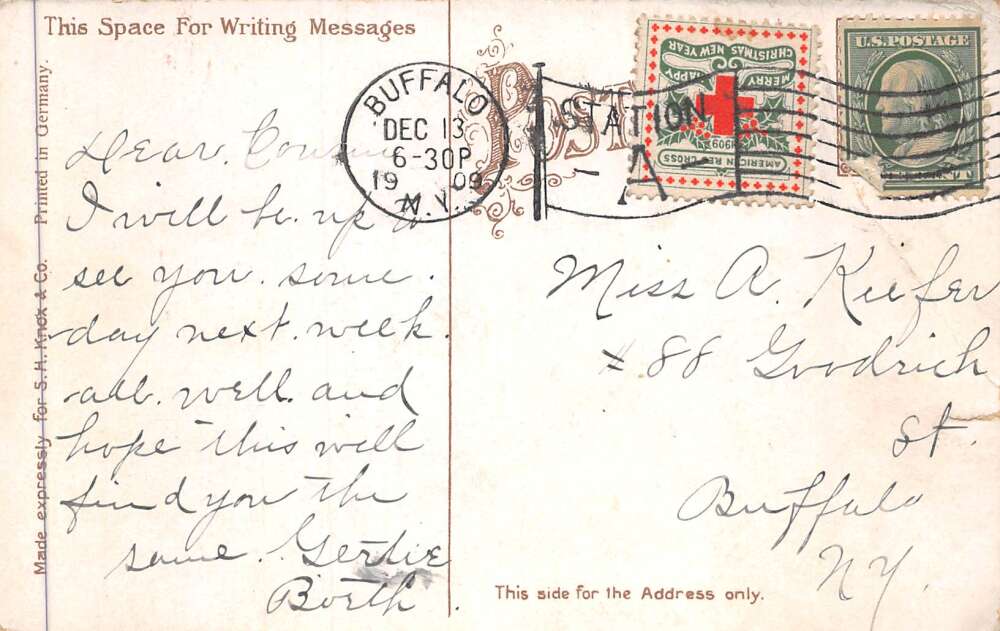 This Space For Writing Messages
Made expressly for S. H. Knox & Co. Printed in Germany.
BUFFALO
DEC 13
6-30P
1909
N.Y.
STATION
-A-
MERRY CHRISTMAS
HAPPY NEW YEAR
1909
AMERICAN RED CROSS
U.S. POSTAGE
Dear Cousin
I will be up to
see you some.
day next. week.
all. well. and
hope this will
find you the
same. Gertie
Borth.
Miss A. Kiefer
# 88 Goodrich
St.
Buffalo
NY.
This side for the Address only.